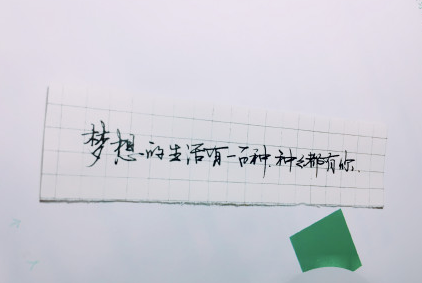 梦想的生活有一百种.种々都有你.